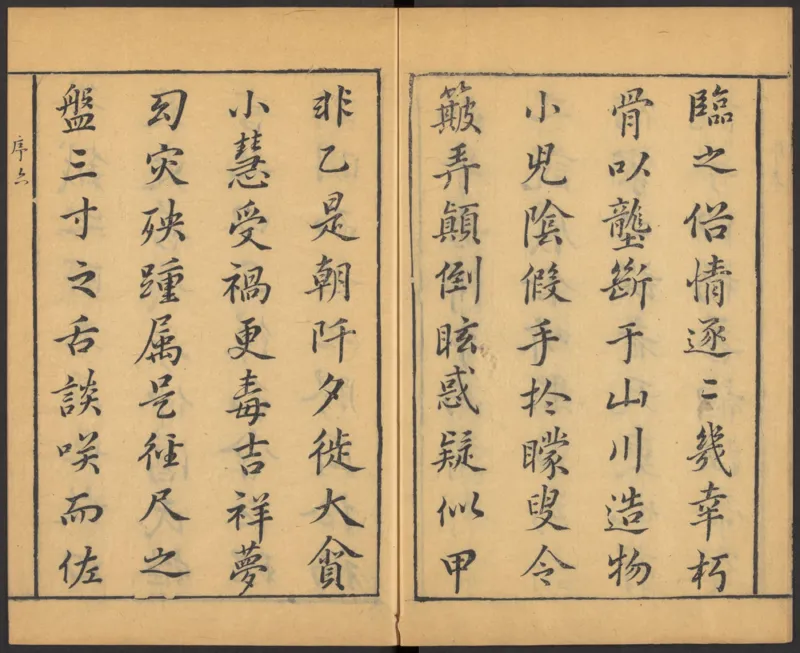 臨之俗情逐〻幾幸朽
骨以壟斷于山川造物
小兒陰假手於矇叟令
簸弄顛倒眩惑疑似甲
非乙是朝阡夕徙大貪
小慧受禍更毒吉祥夢
幻灾殃踵属是徑尺之
盤三寸之舌談咲而佐
序六